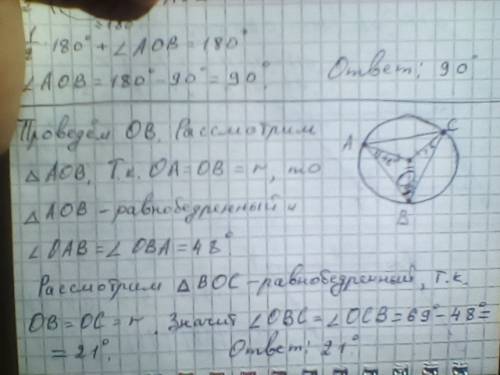 1/2 · 180° + ∠AOB = 180°
∠AOB = 180° - 90° = 90°.
Ответ: 90°
Проведём OB. Рассмотрим
△AOB. Т.к. OA = OB = r, то
△AOB - равнобедренный и
∠OAB = ∠OBA = 48°
Рассмотрим △BOC - равнобедренный, т.к.
OB = OC = r. Значит ∠OBC = ∠OCB = 69° - 48° =
= 21°. Ответ: 21°
A
C
B